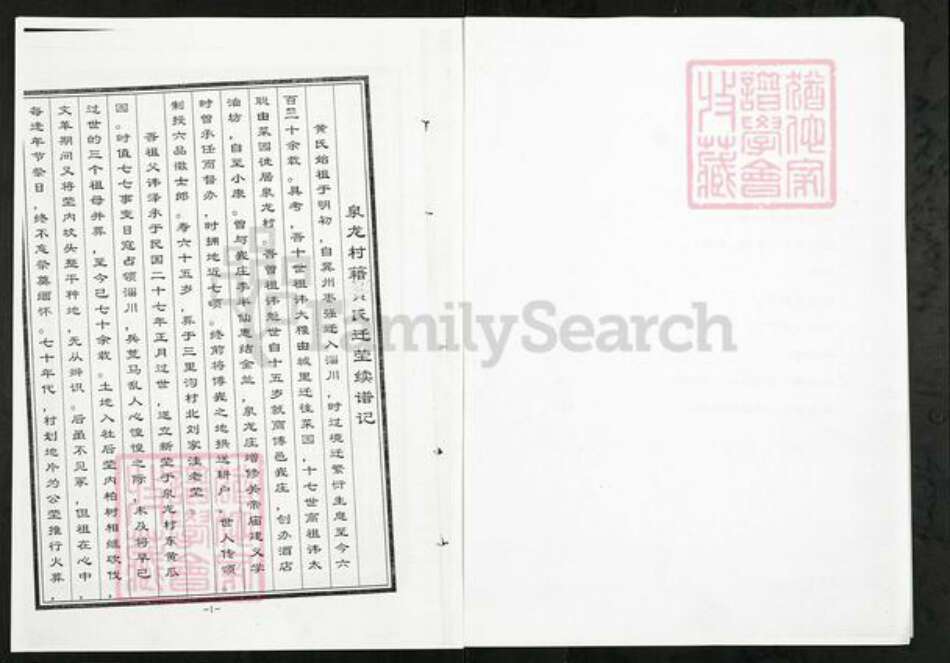 泉龙村籍黄氏迁茔续谱记
黄氏始祖于明初，自冀州枣强迁入淄川，时过境迁繁衍生息至今六
百三十余载。具考，吾十世祖讳大雅由城里迁往菜园，十七世高祖讳太
聪由菜园徙居泉龙村，吾曾祖讳 世自十五岁就商博邑 庄，创办酒店
油坊，自至小康。曾与 庄李半仙惠结金兰，泉龙庄增修关帝庙建义学
时曾承任而督办，时拥地近七顷。终前将博 之地拱送耕户，世人传颂
制授六品徵士郎。寿六十五岁，葬于三里沟村北刘家洼老茔。
吾祖父讳泽承于民国二十七年正月过世，遂立新茔于泉龙村东黄瓜
园。时值七七事变日寇占领淄川，兵荒马乱人心惶惶之际，未及将早已
过世的三个祖母并葬，至今已七十余载。土地入社后茔内柏树相继砍伐，
文革期间又将茔内坟头整平种地，无从辨识。后虽不见冢，但祖在心中，
每逢年节祭日，终不忘祭奠缅怀。七十年代，村划地片为公茔推行火葬，
-1-
猶他家
譜學會
收藏
FamilySearch
猶他家
譜學會
收藏